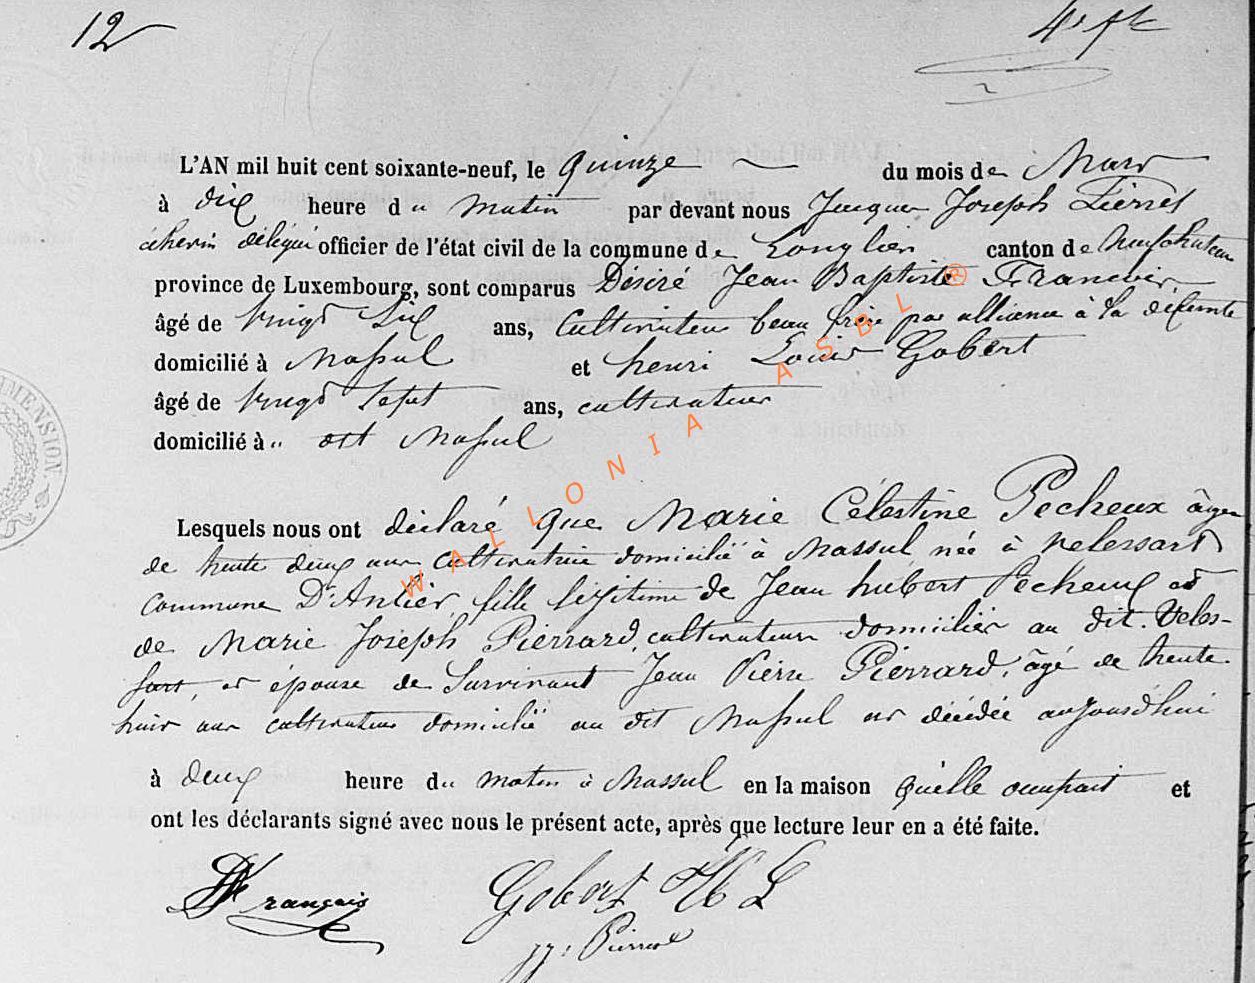 12
L'AN mil huit cent soixante-neuf, le quinze du mois de Mars
à dix heure du matin par devant nous Jacques Joseph Pierret
échevin délégué officier de l'état civil de la commune de Longlier canton de Neufchateau
province de Luxembourg, sont comparus Désiré Jean Baptiste Francois,
âgé de vingt six ans, cultivateur beau frère par alliance à la défunte
domicilié à Massul et henri Louis Gobert
âgé de vingt sept ans, cultivateur
domicilié à dit Massul
Lesquels nous ont déclaré que Marie Célestine Pecheux âgée
de trente deux ans cultivatrice domicilié à Massul née à Nelessart
commune D'Anlier, fille légitime de Jean hubert Pecheux et
de Marie Joseph Pierrard, cultivateurs domiciliés au dit Veles-
sart, et épouse de Survivant Jean Pierre Pierrard, âgé de trente
huit ans cultivateur domicilié au dit Massul est décédée aujourd'hui
à deux heure du matin à Massul en la maison qu'elle occupait et
ont les déclarants signé avec nous le présent acte, après que lecture leur en a été faite.
Français
Gobert H L
JJ: Pierret
WALLONIA ASBL ®
MENSION.